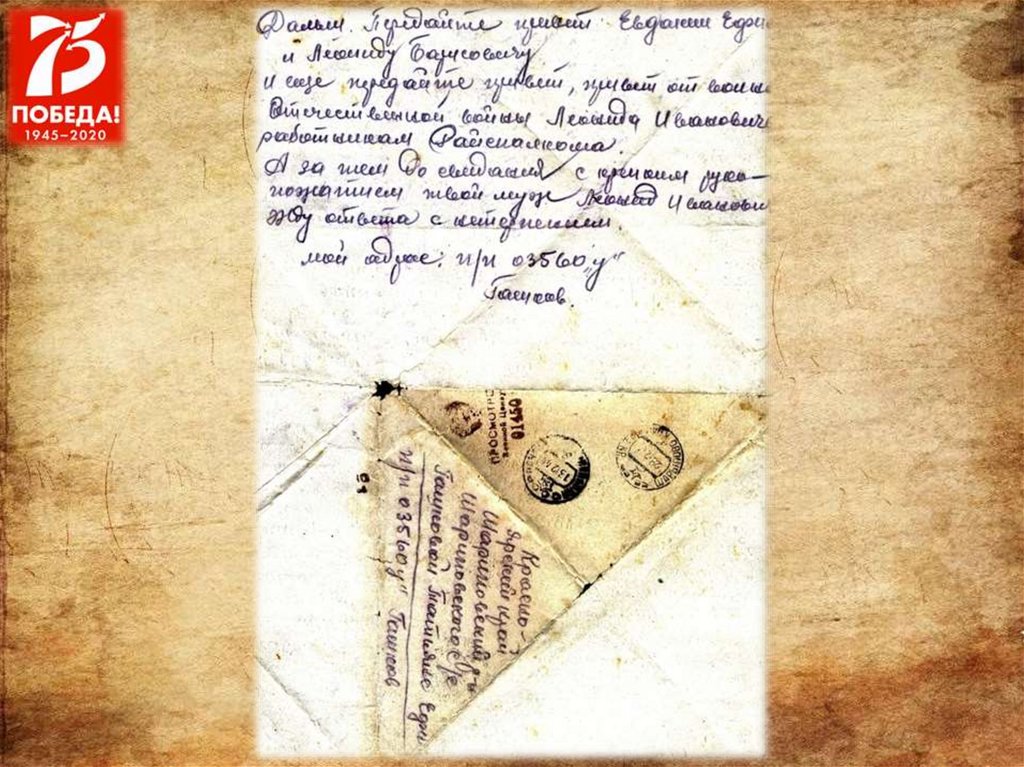 75
ПОБЕДА!
1945–2020
Дальш. Передайте привет Евдакии Ефи
и Леониду Борисовичу
и еще передайте привет, привет от воины
Отечественной войны Леонида Ивановича
работникам Райсполкома.
А за тем до свидания с крепким руко-
пожатием твой муж Леонид Иванович
Жду ответа с нетерпением
мой адрес: п/п 03560 „у"
Гашков.
ПРОСМОТРЕ
Военной Цензу
01450
Красно-
ярский край
Шариповский р-н
Шариповского с/с
Гашковой Татьяне Ефи
п/п 03560 у" Гашков